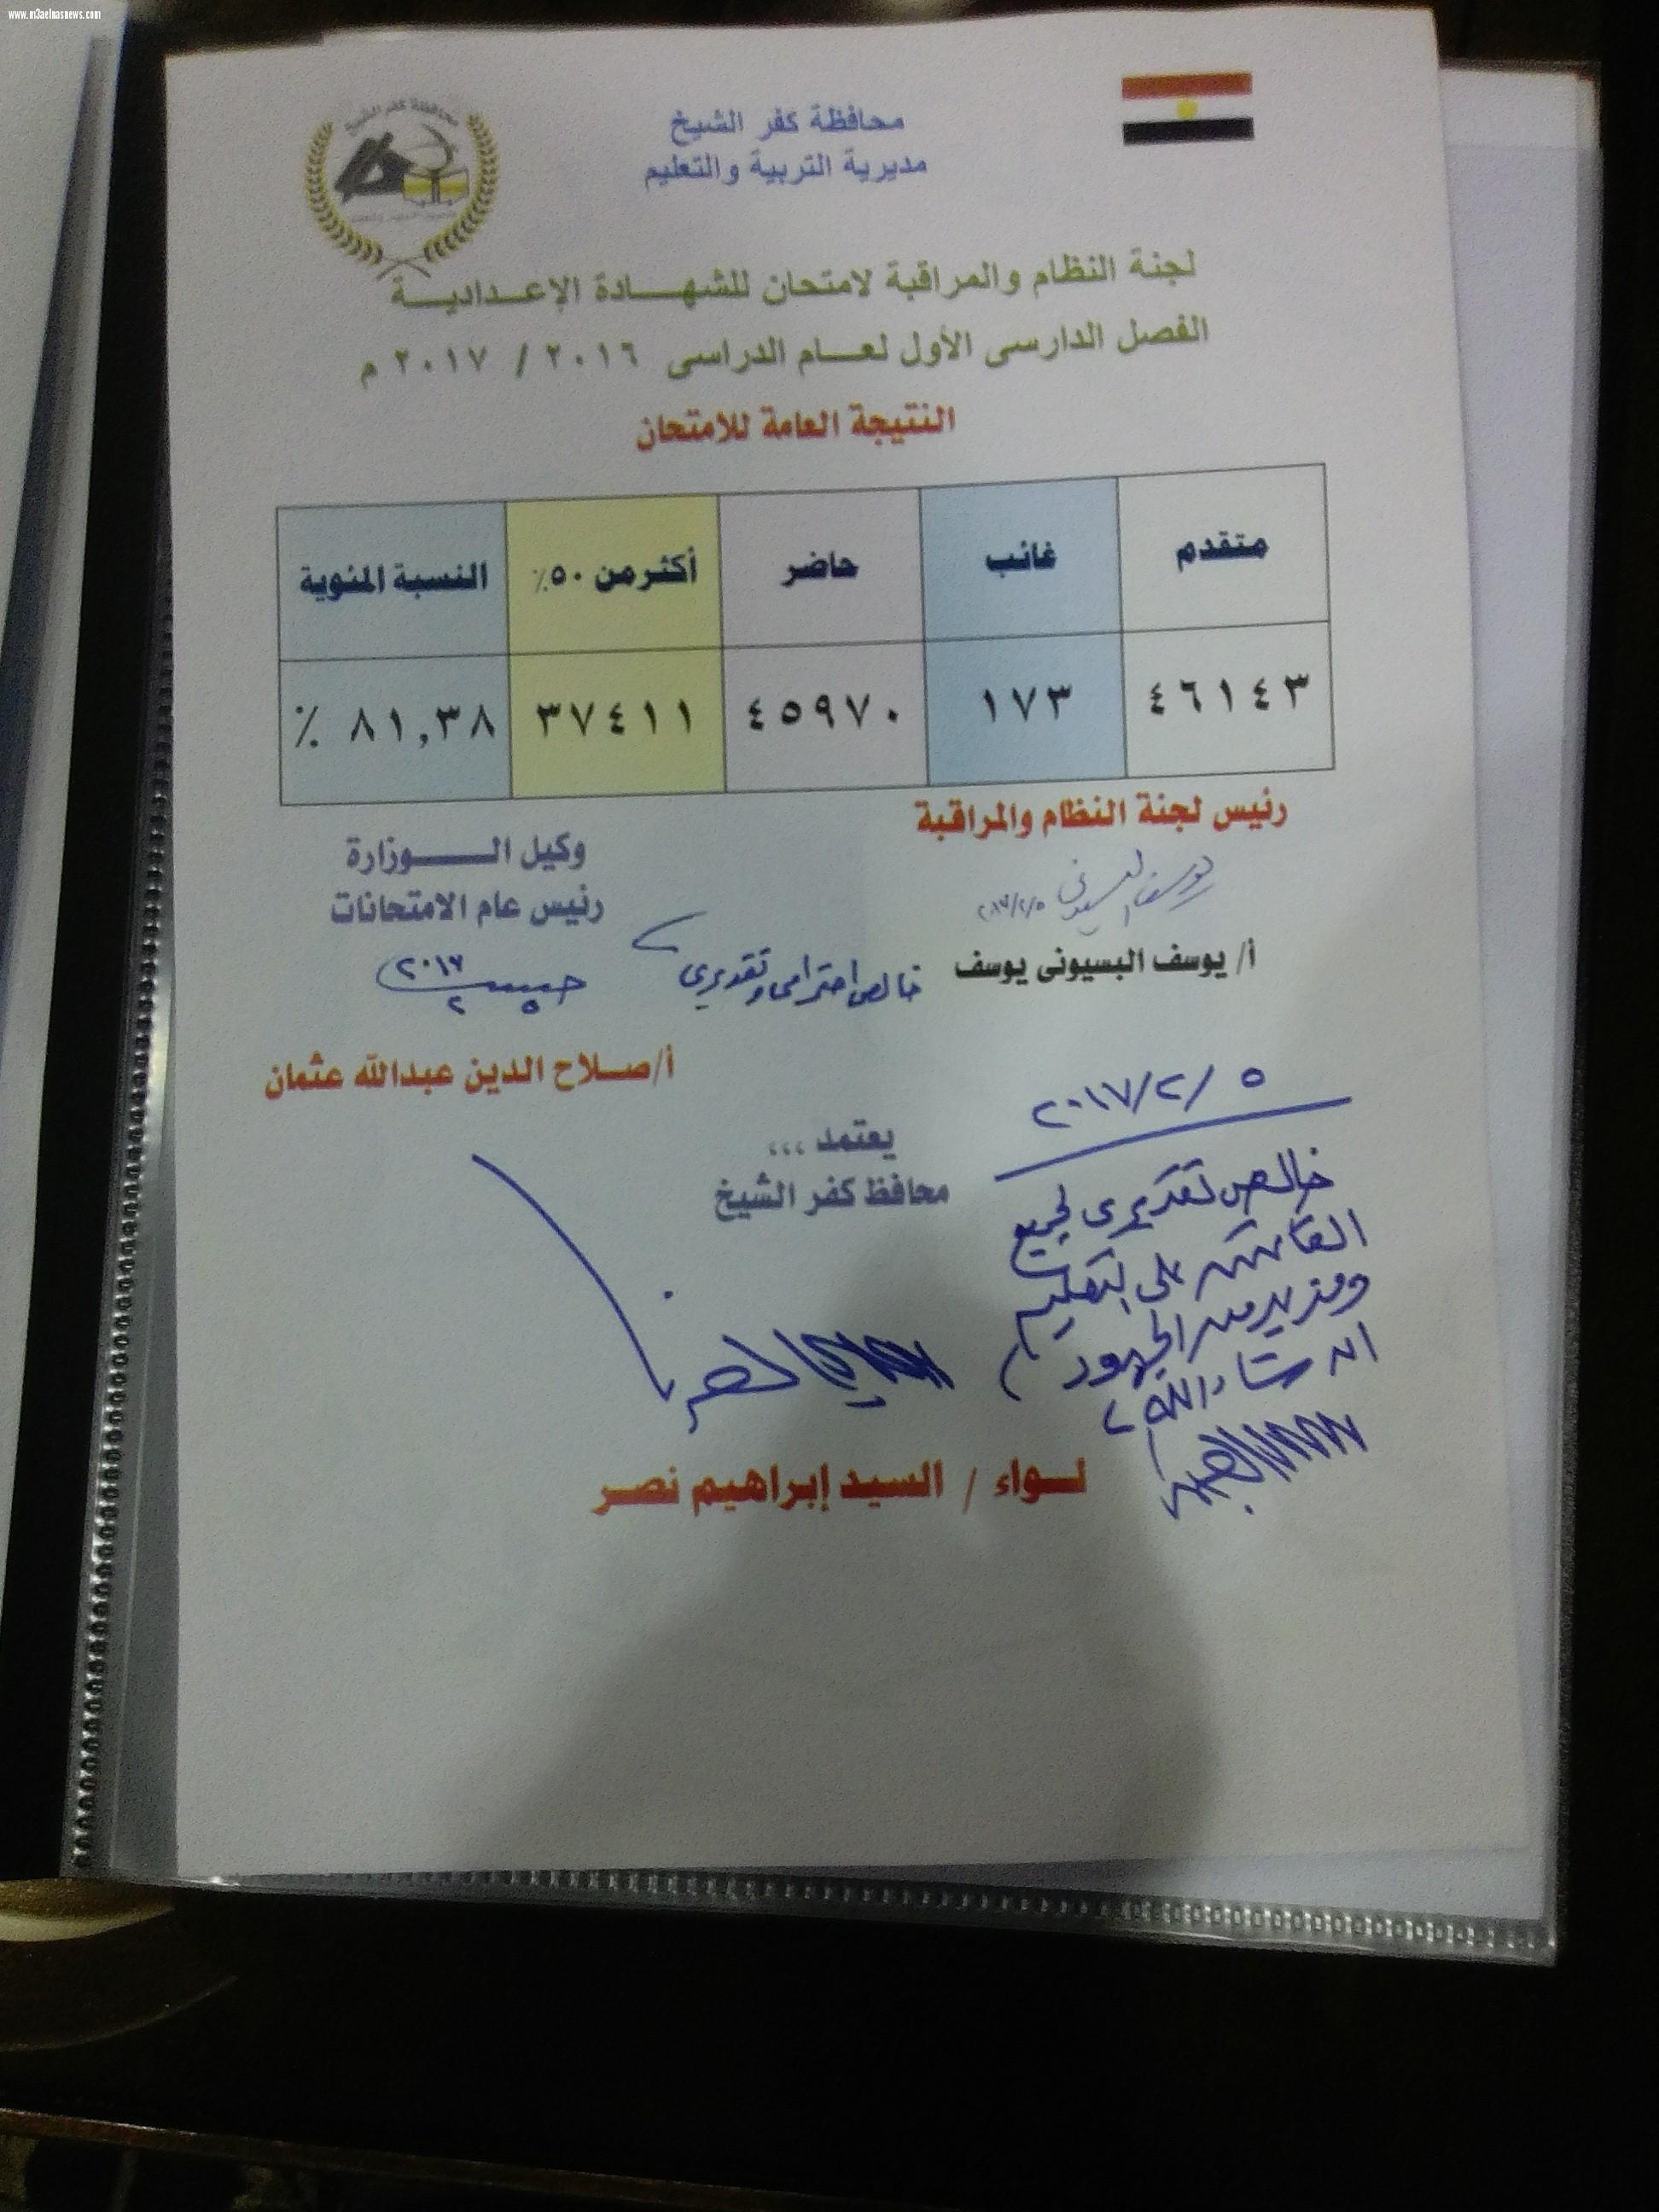 www.m3aelnasnews.com
محافظة كفر الشيخ
محافظة كفر الشيخ
مديرية التربية والتعليم
لجنة النظام والمراقبة لامتحان للشهـــادة الإعــداديـــة
الفصل الدارسى الأول لعـــام الدراسى ٢٠١٦ / ٢٠١٧ م
النتيجة العامة للامتحان
متقدم غائب حاضر أكثر من ٥٠٪ النسبة المئوية
٤٦١٤٣ ١٧٣ ٤٥٩٧٠ ٣٧٤١١ ٨١,٣٨ ٪
رئيس لجنة النظام والمراقبة
وكيل الـــــــوزارة
رئيس عام الامتحانات
يوسف البسيونى
٢٠١٧/٢/٥
أ/ يوسف البسيونى يوسف
خالص احترامى وتقديرى
٢٠١٧
٥ ٢
أ/صــلاح الدين عبدالله عثمان
٢٠١٧/٢/٥
يعتمد ،،،
محافظ كفر الشيخ
خالص تقديرى لجميع
القائمين على التعليم
ومزيد من الجهود
ان شاء الله
لــواء / السيد إبراهيم نصر